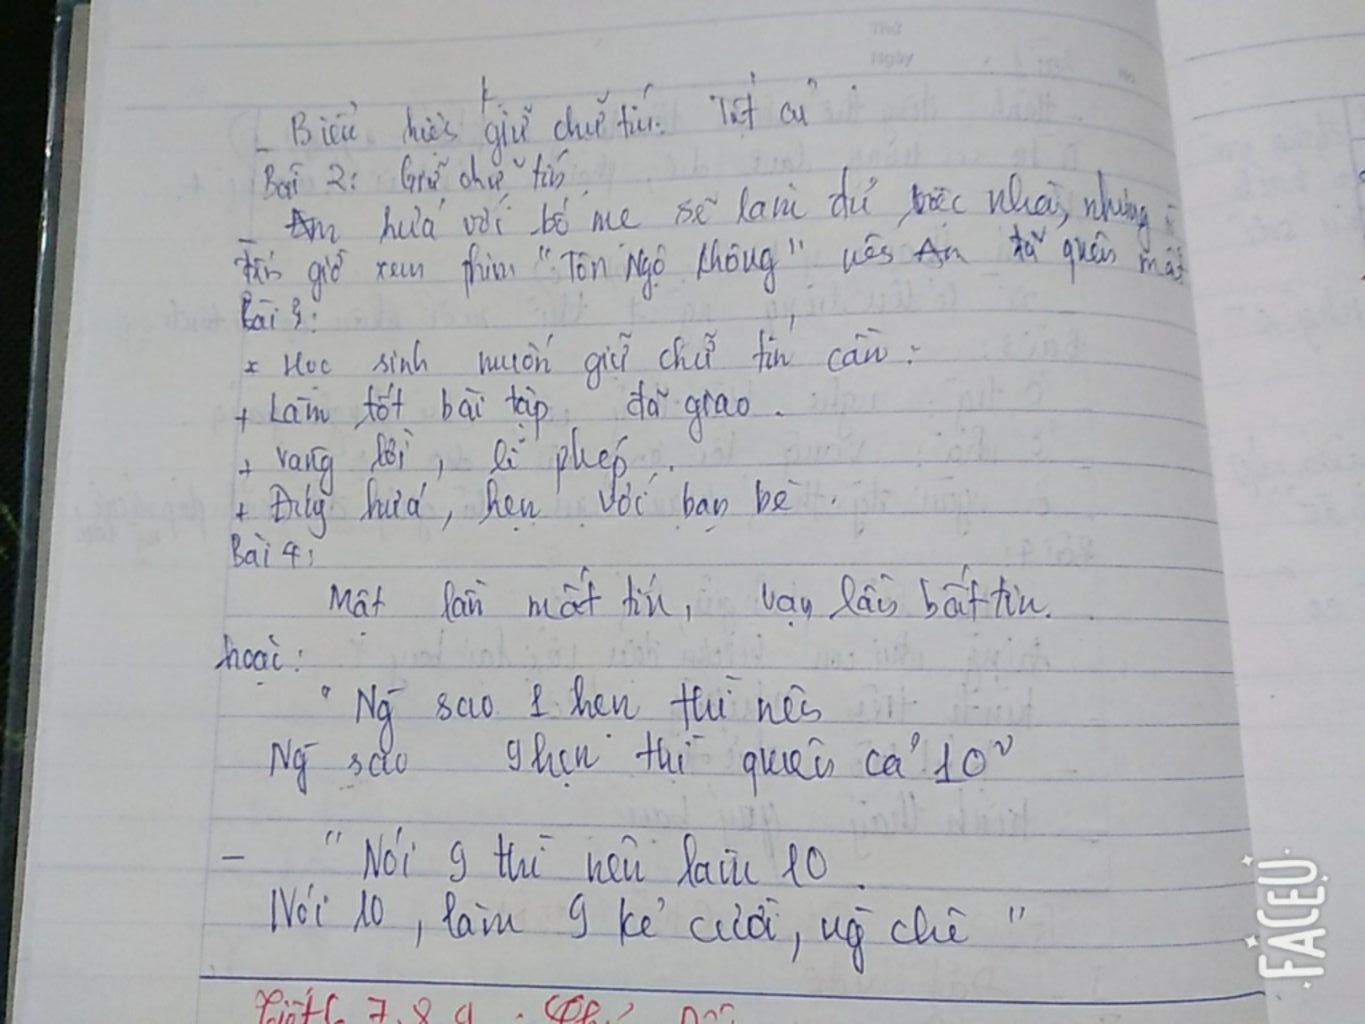 - Biểu hiện k giữ chữ tín: Tất cả
Bài 2: Giữ chữ tín
- An hứa với bố mẹ sẽ làm đủ việc nhà, nhưng vì
đến giờ xem phim "Tôn Ngộ Không" nên An đã quên mất
Bài 3:
* Học sinh muốn giữ chữ tín cần:
+ Làm tốt bài tập đã giao.
+ vang lời, lễ phép.
+ Đúng hứa, hẹn với bạn bè.
Bài 4:
Một lần mất tín, vạn lần bất tin.
hoặc:
" Ng̃ sao 1 hẹn thì nên
Ng̃ sao 9 hẹn thì quên cả 10"
- "Nói 9 thì nên làm 10.
Nói 10, làm 9 kẻ cười, ng̃ chê "
7, 8, 9
FACEU